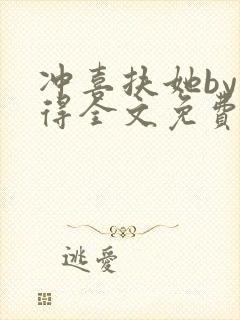 冲喜扶她by
得全文免费
逃爱